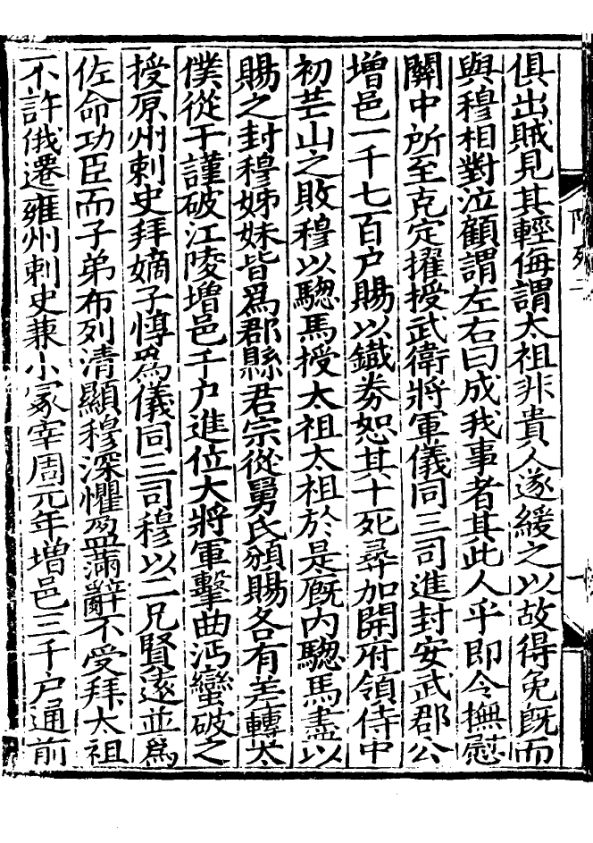 俱出賊見其輕侮謂太祖非貴人遂緩之以故得免旣而
與穆相對泣顧謂左右曰成我事者其此人乎即令撫慰
關中所至克定擢授武衛將軍儀同三司進封安武郡公
增邑一千七百户賜以鐵券恕其十死尋加開府領侍中
初芒山之敗穆以驄馬授太祖太祖於是廐内驄馬盡以
賜之封穆姊妹皆爲郡縣君宗從舅氏頒賜各有差轉太
僕從于謹破江陵增邑千户進位大將軍擊曲沔蠻破之
授原州刺史拜嫡子惇爲儀同三司穆以二兄賢遠並爲
佐命功臣而子弟布列清顯穆深懼盈滿辭不受拜太祖
不許俄遷雍州刺史兼小冢宰周元年增邑三千户通前